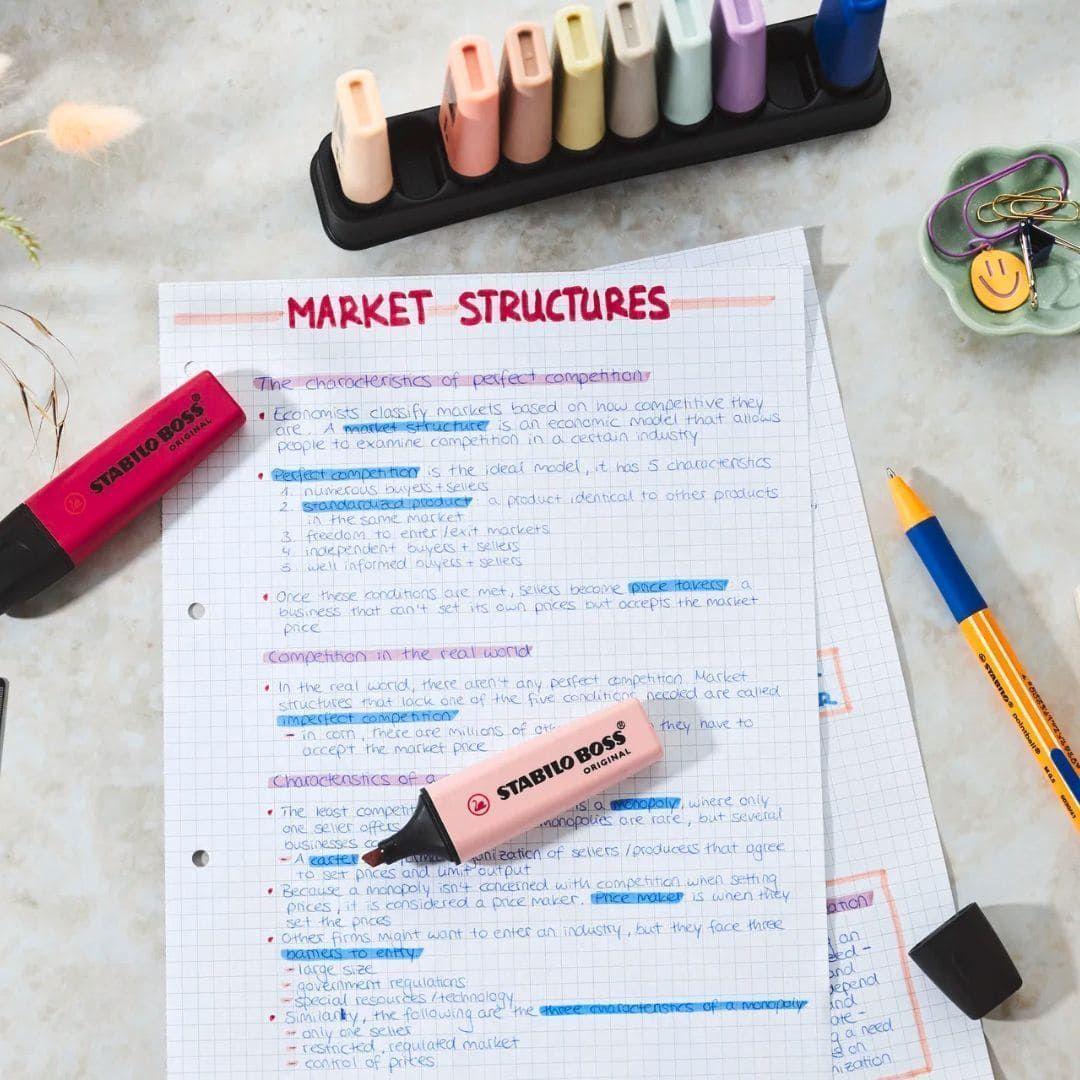 MARKET STRUCTURES
The characteristics of perfect competition
• Economists classify markets based on how competitive they
are. A market structure is an economic model that allows
people to examine competition in a certain industry
• Perfect competition is the ideal model, it has 5 characteristics
1. numerous buyers + sellers
2. standardized product: a product identical to other products
in the same market
3. freedom to enter/exit markets
4. independent buyers + sellers
5. well informed buyers + sellers
• Once these conditions are met, sellers become price takers, a
business that can't set its own prices but accepts the market
price
Competition in the real world
• In the real world, there aren't any perfect competition. Market
structures that lack one of the five conditions needed are called
imperfect competition
- in corn, there are millions of they have to
accept the market price
Characteristics of a
• The least is a monopoly, where only
one seller offers monopolies are rare, but several
businesses
- A cartel of sellers/producers that agree
to set prices and limit output
• Because a monopoly isn't concerned with competition when setting
prices, it is considered a price maker. Price maker is when they
set the prices
• Other firms might want to enter an industry, but they face three
barriers to entry
- large size
- government regulations
- special resources/technology
• Similarly, the following are the three characteristics of a monopoly
- only one seller
- restricted, regulated market
- control of prices
STABILO BOSS
ORIGINAL
STABILO BOSS
ORIGINAL
STABILO pointball
an
and
and
a need
on